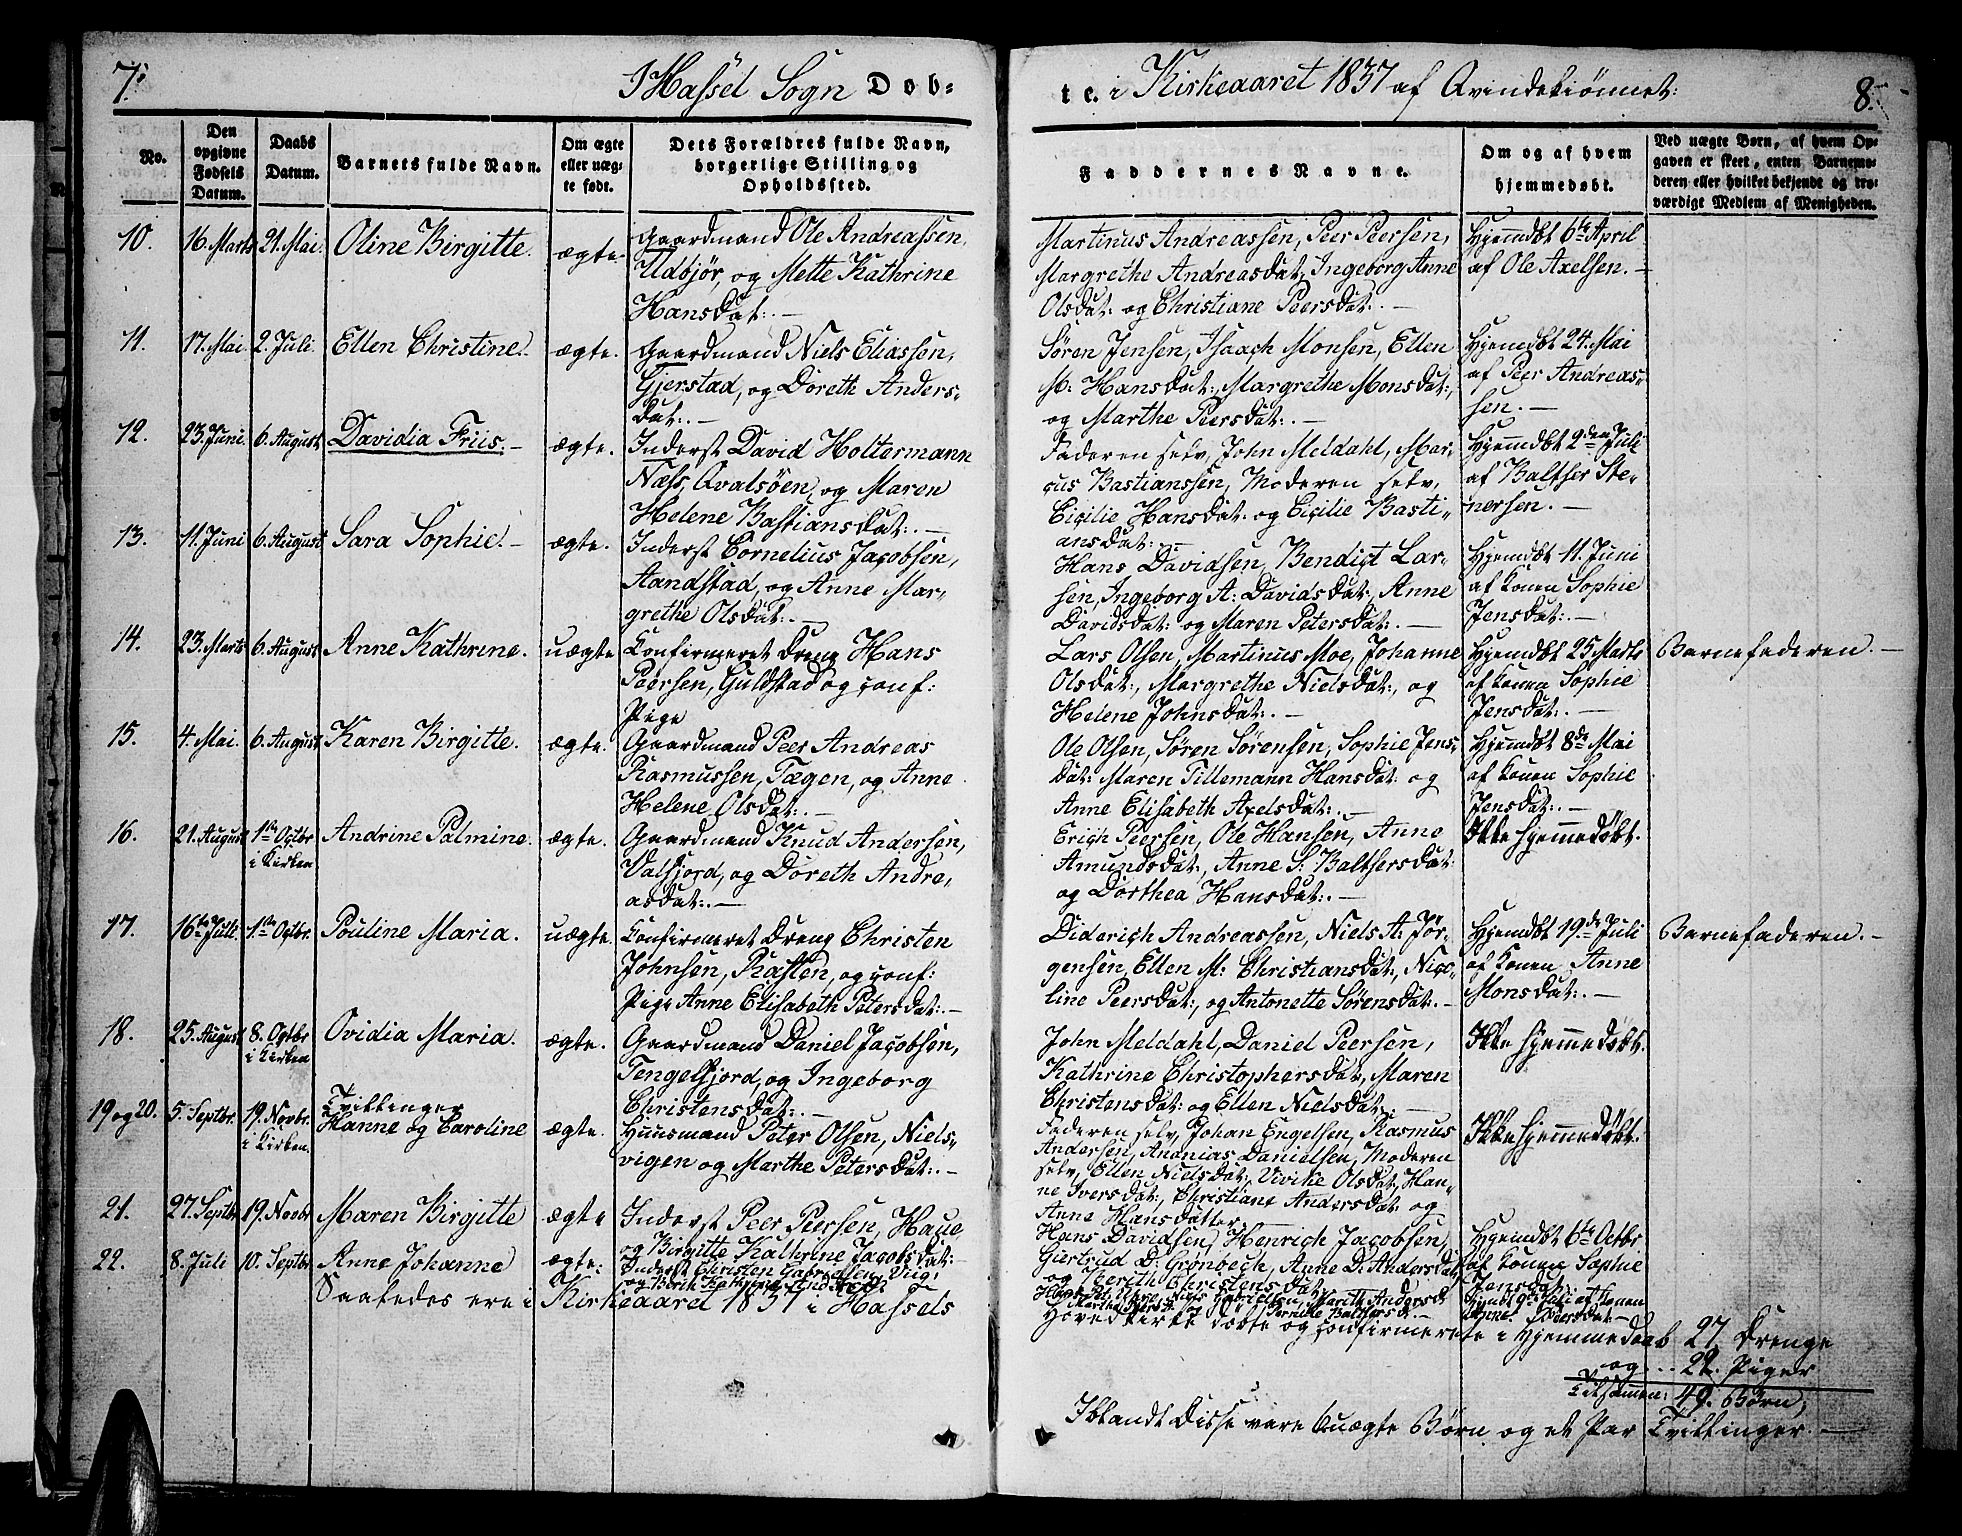 7.
I Hassel Sogn Døb-
No.
Den opgivne Fødsels Datum.
Daabs Datum.
Barnets fulde Navn.
Om ægte eller uægte født.
Dets Forældres fulde Navn, borgerlige Stilling og Opholdssted.
10. 16. Marts 21. Mai. Oline Birgitte. ægte.
Gaardmand Ole Andreassen,
Udbjør, og Mette Kathrine
Hansdat:. —
11. 17. Mai 2. Juli. Ellen Christine. ægte.
Gaardmand Niels Eliassen,
Gjerstad, og Doreth Anders-
dat:. —
12. 23. Juni 6. August Davidia Friis. — ægte.
Inderst David Holtermann
Næss, Qvalsöen, og Maren
Helene Bastiansdat:. —
13. 11. Juni 6. August Sara Sophie. — ægte.
Inderst Cornelius Jacobsen,
Aandstad, og Anne Mar-
grethe Olsdat:. —
14. 23. Marts 6. August Anne Kathrine. uægte
Confirmeret Dreng Hans
Peersen, Guldstad og conf:
Pige
15. 4. Mai. 6. August Karen Birgitte. ægte.
Gaardmand Peer Andreas
Rasmussen, Tægen, og Anne
Helene Olsdat:. —
16. 21. August 1ste Octbr i Kirken Andrine Palmine. ægte.
Gaardmand Knud Andersen,
Valfjord, og Doreth Andre-
asdat:. —
17. 16de Juli. 1ste Octbr. Pouline Maria. uægte.
Confirmeret Dreng Christen
Johnsen, Kasten, og conf:
Pige Anne Elisabeth Petersdat:. —
18. 25. August 8. Octbr i Kirken Ovidia Maria. ægte.
Gaardmand Daniel Jacobsen,
Tengelfjord, og Ingeborg
Christensdat:. —
19 og 20. 5. Septbr. 19. Novbr. i Kirken. Tvillinger Hanne og Caroline ægte.
Huusmand Peter Olsen, Niels-
vigen og Marthe Petersdat:. —
21. 27. Septbr 19. Novbr Maren Birgitte ægte
Inderst Peer Peersen, Haue,
og Birgitte Kathrine Jacobsdat:
22. 8. Juli 10. Septbr Anne Johanne ægte.
Inderst Christen Gabrielsen, Vug,
Saaledes ere i Kirkeaaret 1837 i Hassels
te. i Kirkeaaret 1837 af Qvindekiønnet:
8.
Faddernes Navne.
Om og af hvem hjemmedøbt.
Ved uægte Børn, af hvem Opgaven er skeet, enten Barnemoderen eller hvilket bekjendt og troværdigt Medlem af Menigheden.
Martinus Andreassen, Peer Peersen,
Margrethe Andreasdat:, Ingeborg Anne
Olsdat: og Christiane Peersdat:. —
Hjemdbt 6te April
af Ole Axelsen. —
Sören Jensen, Isaach Monsen, Ellen
M: Hansdat:, Margrethe Monsdat:,
og Marthe Peersdat:. —
Hjemdbt 24. Mai
af Peer Andreas-
sen. —
Faderen selv, John Meldahl, Mar-
cus Bastianssen, Moderen selv,
Cicilie Hansdat: og Cicilie Basti-
ansdat:. —
Hjemdbt 2den Juli
af Balthser Ste-
nersen. —
Hans Davidsen, Bendict Lar-
sen, Ingeborg A: Davidsdat:, Anne
Davidsdat: og Maren Petersdat:. —
Hjemdbt 11. Juni
af Konen Sophie
Jensdat:. —
Lars Olsen, Martinus Moe, Johanne
Olsdat:, Margrethe Nielsdat:, og
Helene Johnsdat:. —
Hjemdbt 25 Marts
af Konen Sophie
Jensdat:. —
Barnefaderen. —
Ole Olsen, Sören Sörensen, Sophie Jens-
dat: Maren Tillemann Hansdat: og
Anne Elisabeth Axelsdat:. —
Hjemdbt 8de Mai
af Konen Sophie
Jensdat:. —
Erich Peersen, Ole Hansen, Anne
Amundsdat:, Anne S: Balthsersdat:
og Dorthea Hansdat:. —
Ikke hjemmedøbt.
Diderich Andreassen, Niels A: Jör-
gensen, Ellen M: Christiansdat:, Nico-
line Peersdat:, og Antonette Sörensdat:. —
Hjemdbt 19de Juli
af Konen Anne
Monsdat:. —
Barnefaderen. —
John Meldahl, Daniel Peersen,
Kathrine Christophersdat:, Maren
Christensdat: og Ellen Nielsdat:. —
Ikke hjemmedøbt.
Faderen selv, Johan Engelsen, Rasmus
Andersen, Ananias Danielsen, Moderen
selv, Ellen Nielsdat:, Vivike Olsdat:, Han-
ne Iversdat:, Christiane Andersdat: og
Anne Hansdatter.
Ikke hjemmedøbt.
Hans Davidsen, Henrich Jacobsen,
Giertrud D: Grønbech, Anne D: Andersdat:
og Berith Christensdat:
Hjemdbt 6te Octbr
af Konen Sophie
Jensdat:
Niels Gabrielsen, Marith Andersd:
Hjemdt 9de Juli af Konen
Anne Peersdat:
Hovedkirke döbte og confirmerede i Hjemmedaab 27 Drenge
og ... 22. Piger
Tilsammen: 49. Börn,
Iblandt Disse vare 6 uægte Börn og et Par Tvillinger. —